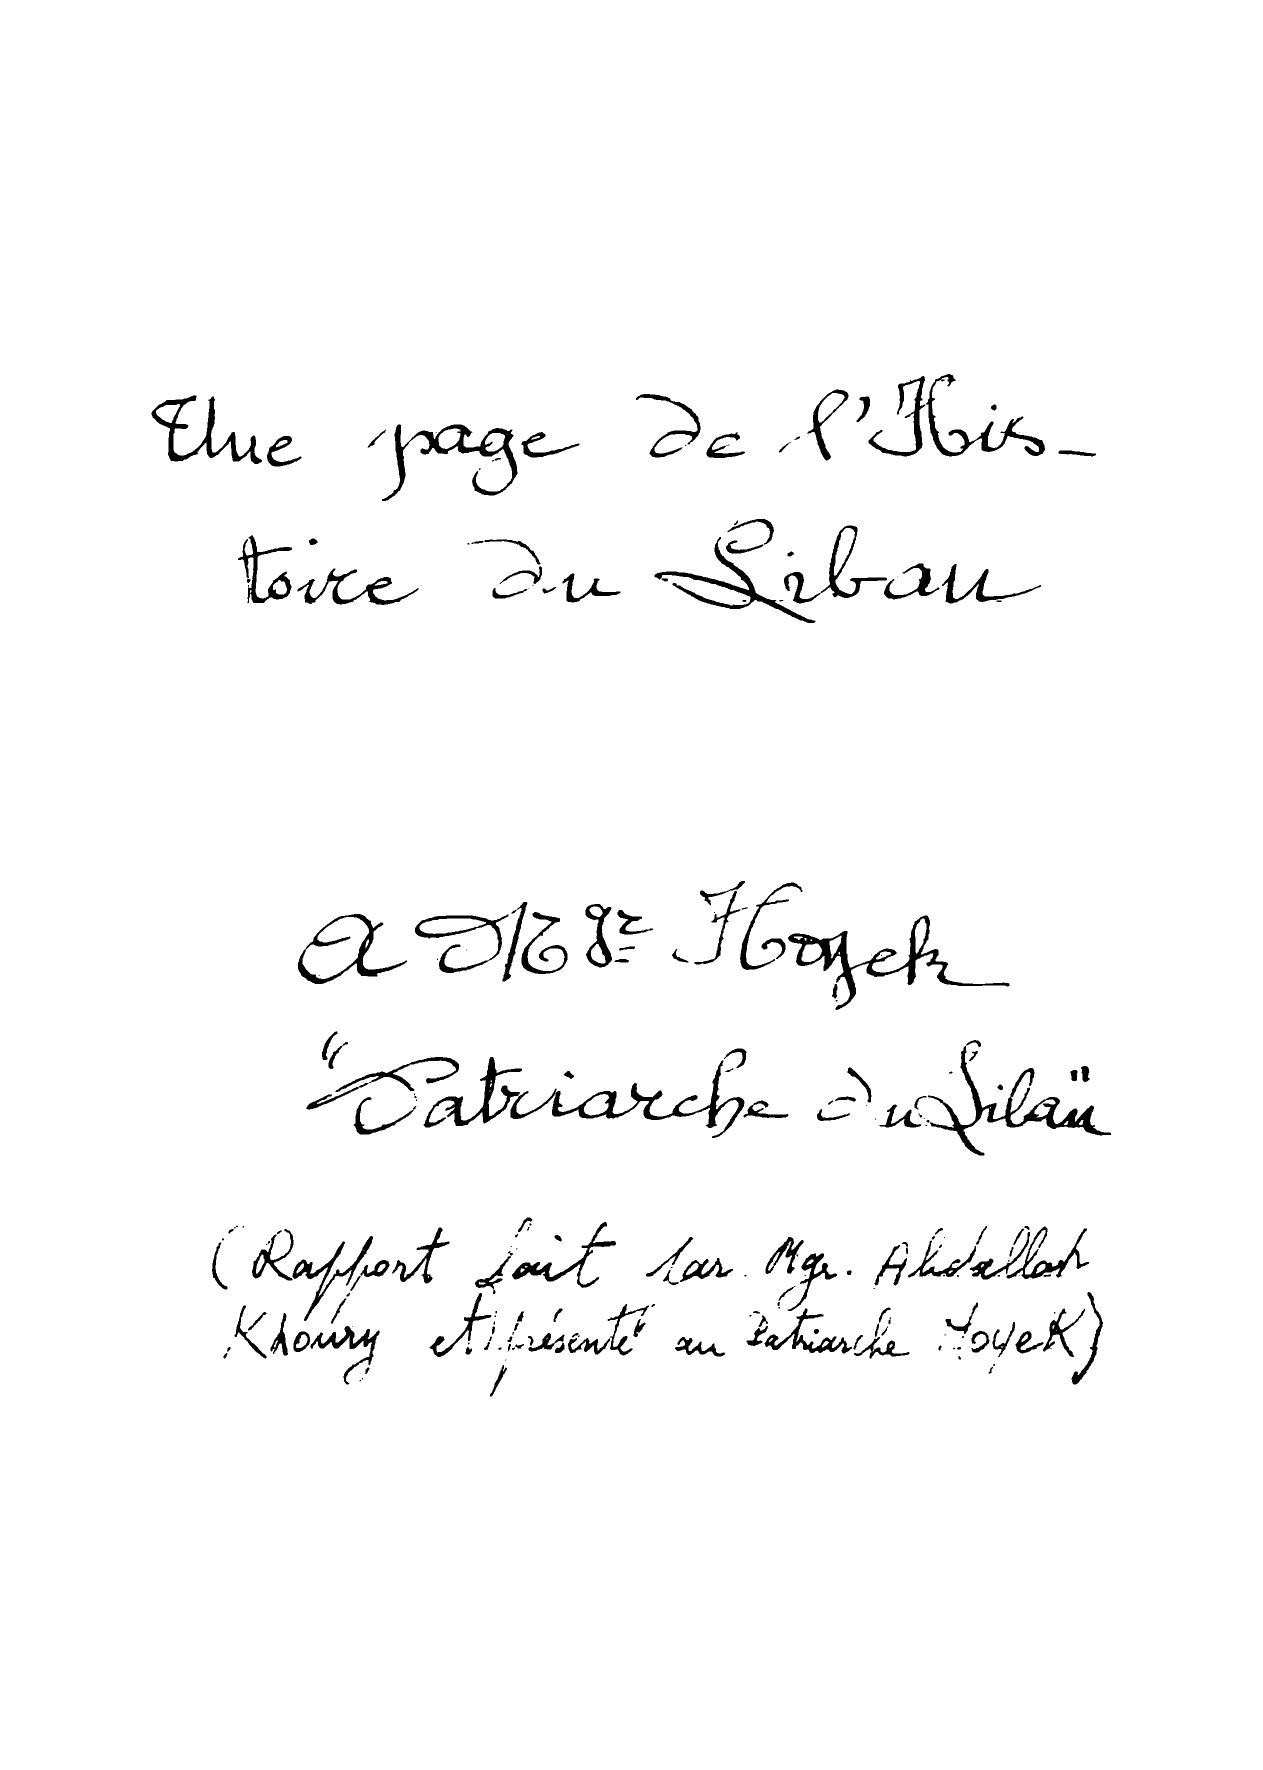 Une page de l'His-
toire du Liban
A Mgr Hoyek
"Patriarche du Liban"
(Rapport fait par Mgr. Abdallah
Khoury et présenté au Patriarche Hoyek)